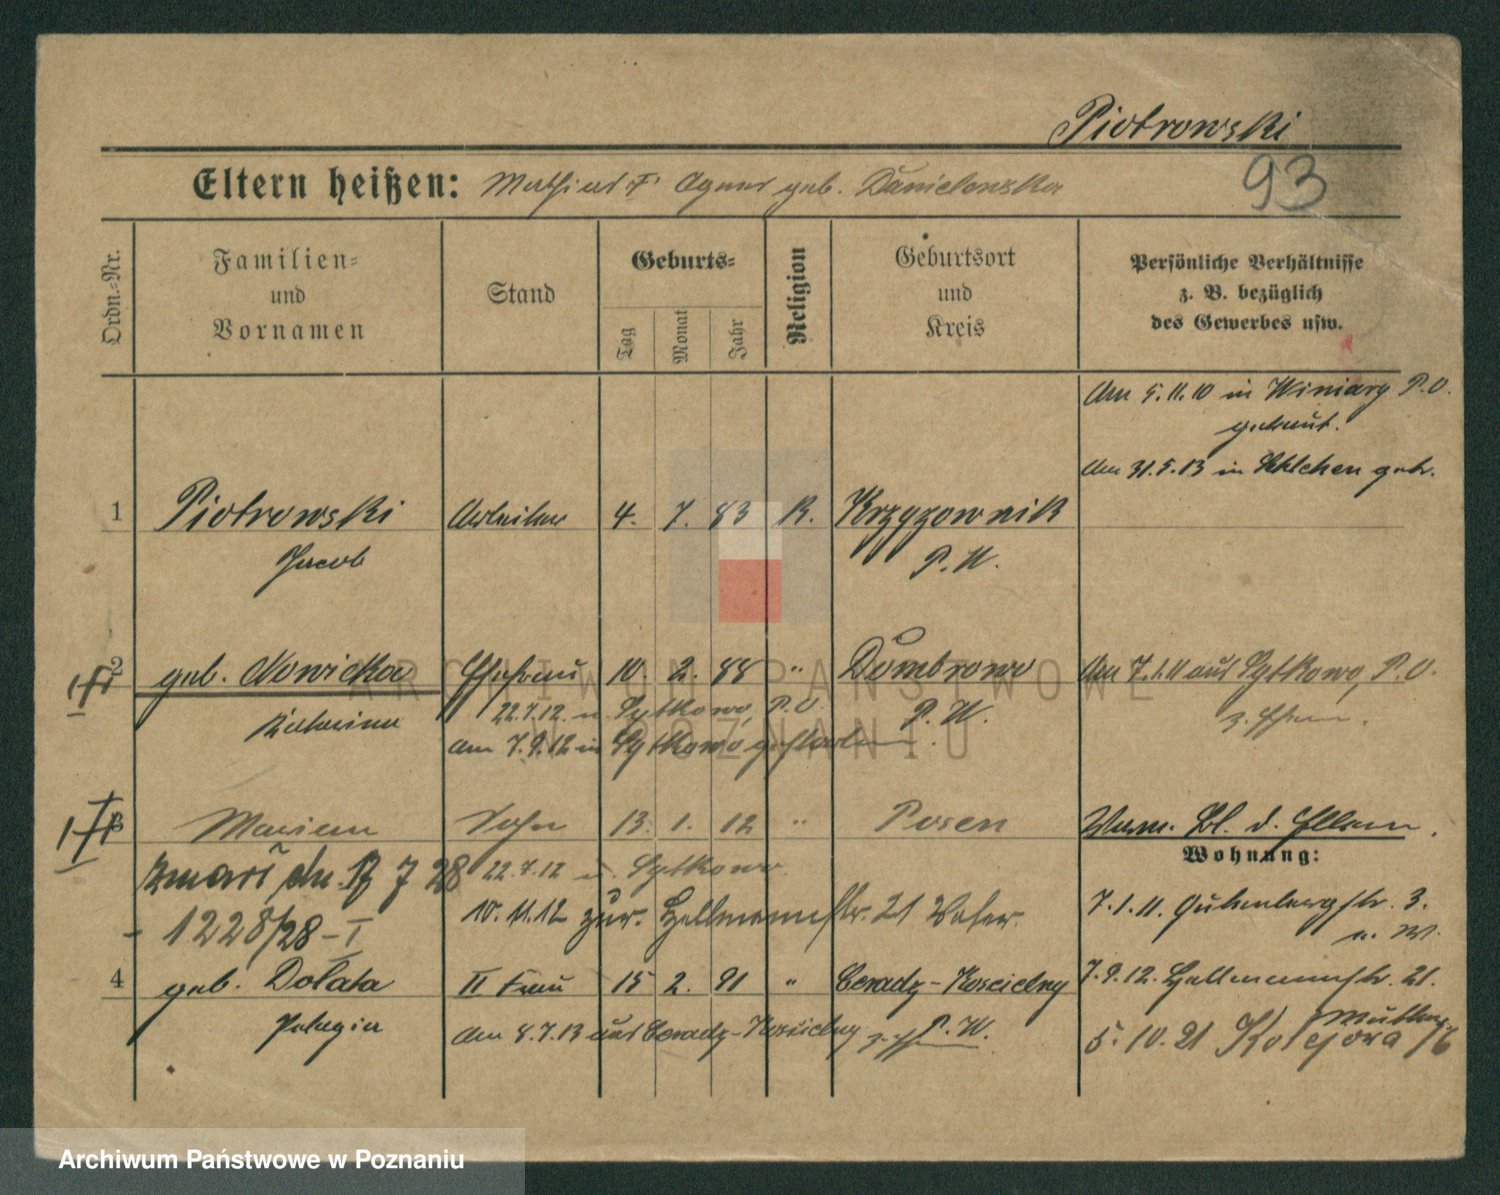 Piotrowski
93
Eltern heißen: Mathias † Agnes geb. Danielewska
Ordn.-Nr.
Familien-
und
Vornamen
Stand
Geburts-
Tag
Monat
Jahr
Religion
Geburtsort
und
Kreis
Persönliche Verhältnisse
z. B. bezüglich
des Gewerbes usw.
Am 5.11.10 in Winiary P.O.
getraut.
Am 31.5.13 in getr.
1 Piotrowski Arbeiter 4. 7. 83 K. Krzyzownik
Jacob P. W.
2 geb. Nowicka Ehefrau 10. 2. 88 " Dombrowo Am 7.1.11 aus Sytkowo, P.O.
Katarina 22.7.12 n. Sytkowo, P.O. P. W. z. Ehem.
am 7.9.12 in Sytkowo gestorben.
3 Marian Sohn 13. 1. 12 " Posen Verm. Bl. d. Eltern.
Wohnung:
zmarł dn. 17 7 28 22.7.12 n. Sytkowo
7.1.11. Gutenbergstr. 3.
10.11.12 zur. Hellmannstr. 21 Vater.
n. W.
- 1228/28 - I
4 geb. Dolata II Frau 15 2. 91 " Ceradz-Koscielny 7.9.12. Hellmannstr. 21.
Pelagia Am 8.7.13 aus Ceradz-Koscielny z. Ehem. P. W.
Mutter
5. 10. 21 Kolejowa 16
ARCHIWUM PAŃSTWOWE
W POZNANIU
Archiwum Państwowe w Poznaniu